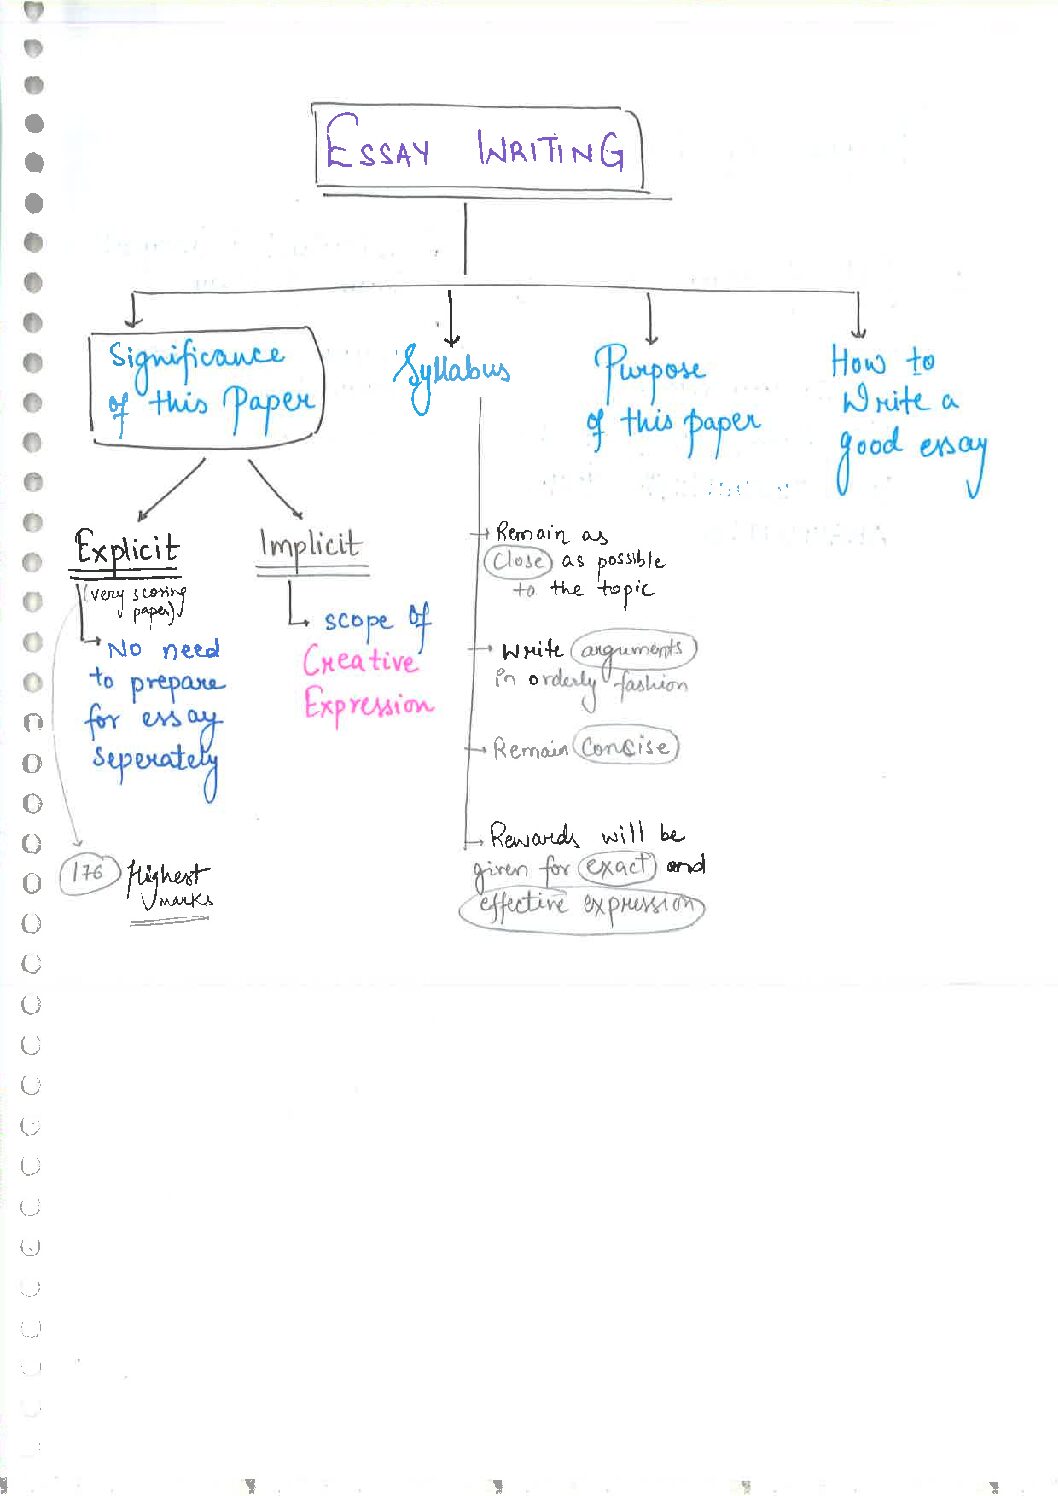 ESSAY WRITING
Significance
of this Paper
Syllabus
Purpose
of this paper
How to
Write a
good essay
Explicit
(very scoring
paper)
No need
to prepare
for essay
seperately
176 Highest
marks
Implicit
scope of
Creative
Expression
Remain as
close as possible
to the topic
Write arguments
in orderly fashion
Remain Concise
Rewards will be
given for exact and
effective expression